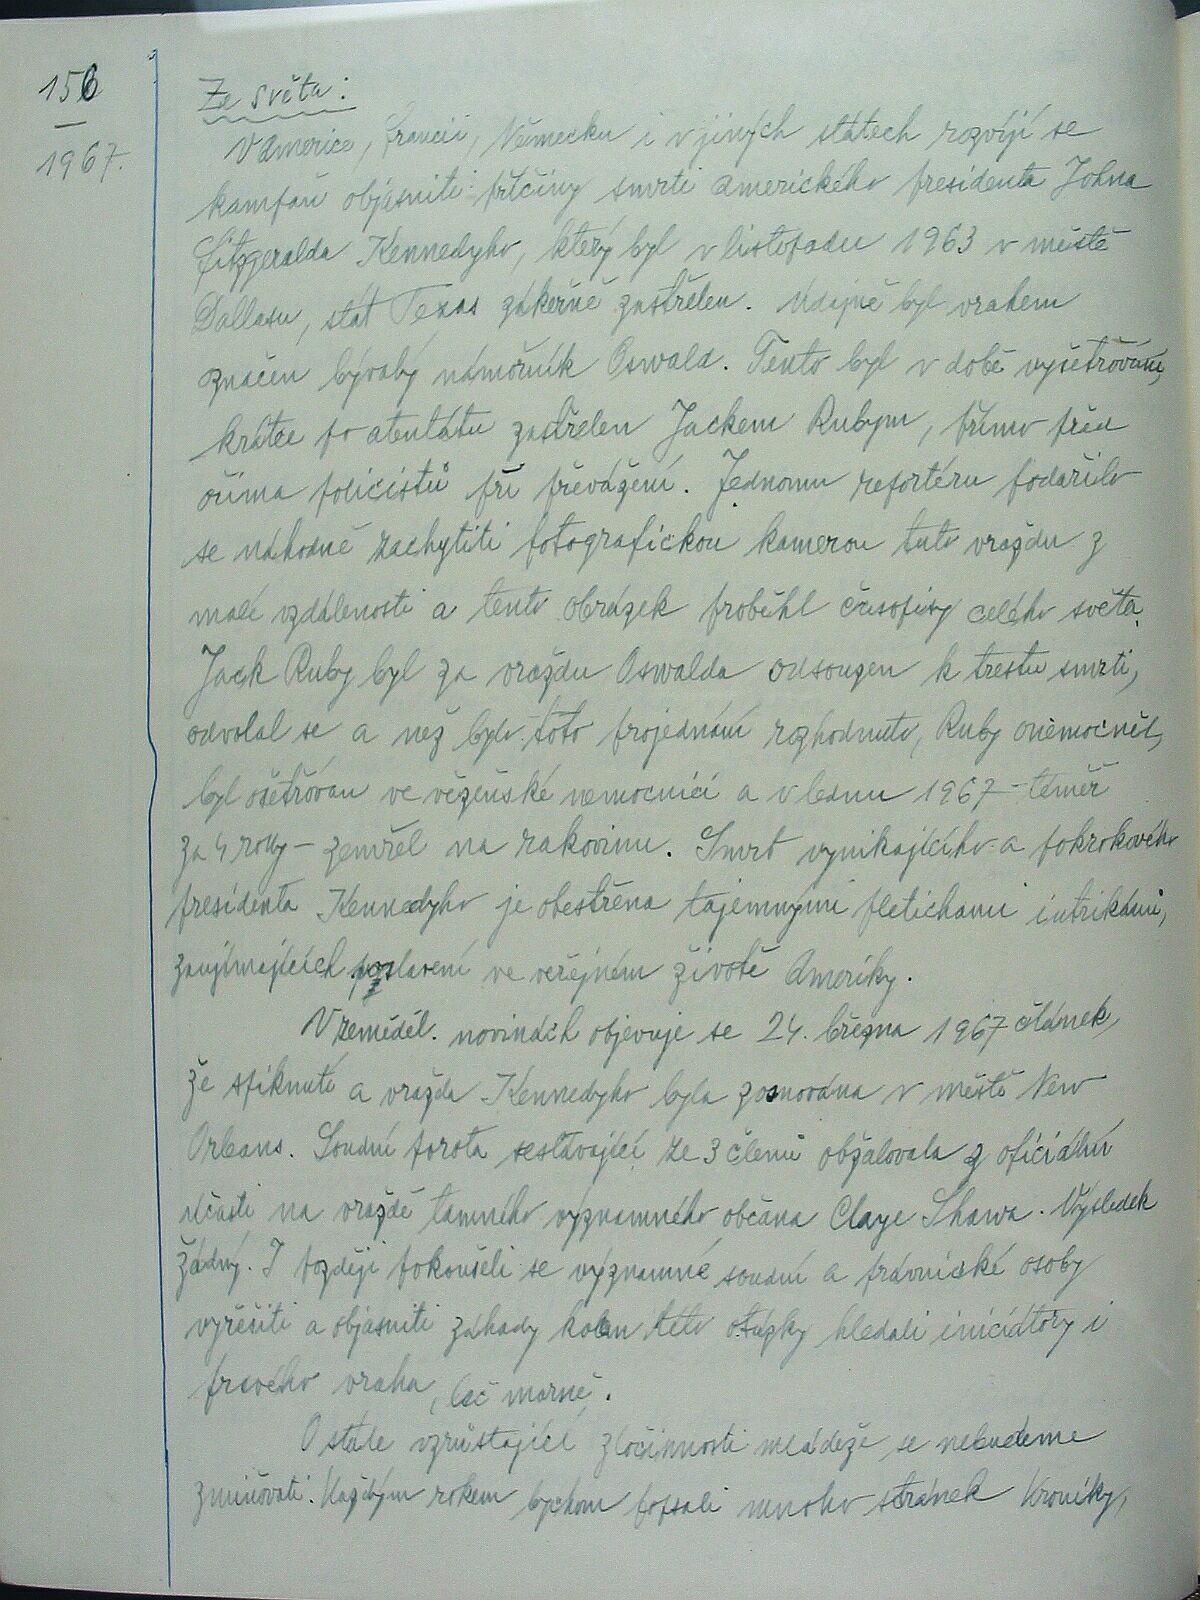 156
1967.
Ze světa:
V Americe, Francii, Německu i v jiných státech rozvíjí se
kampaň objasniti příčiny smrti amerického presidenta Johna
Fitzgeralda Kennedyho, který byl v listopadu 1963 v městě
Dallasu, stát Texas zákeřně zastřelen. Údajně byl vrahem
označen bývalý námořník Oswald. Tento byl v době vyšetřování,
krátce po atentátu zastřelen Jackem Rubym, přímo před
očima policistů při převážení. Jednomu reportéru podařilo
se náhodně zachytiti fotografickou kamerou tuto vraždu z
malé vzdálenosti a tento obrázek proběhl časopisy celého světa.
Jack Ruby byl za vraždu Oswalda odsouzen k trestu smrti,
odvolal se a než bylo toto projednání rozhodnuto, Ruby onemocněl,
byl ošetřován ve vězeňské nemocnici a v lednu 1967 - téměř
za 4 roky - zemřel na rakovinu. Smrt vynikajícího a pokrokového
presidenta Kennedyho je obestřena tajemnými pletichami intrikámi,
zaujímajících postavení ve veřejném životě Ameriky.
V zeměděl. novinách objevuje se 24. března 1967 článek,
že spiknutí a vražda Kennedyho byla zosnována v městě New
Orleans. Soudní porota sestávající ze 3 členů obžalovala z oficiální
účasti na vraždě tamního významného občana Claye Shawa. Výsledek
žádný. I později pokoušeli se význámné soudní a právnické osoby
vyřešiti a objasniti záhady kolem této otázky hledali iniciátory i
pravého vraha, leč marně.
O stále vzrůstající zločinnosti mládeže se nebudeme
zmiňovati. Každým rokem bychom popsali mnoho stránek kroniky,